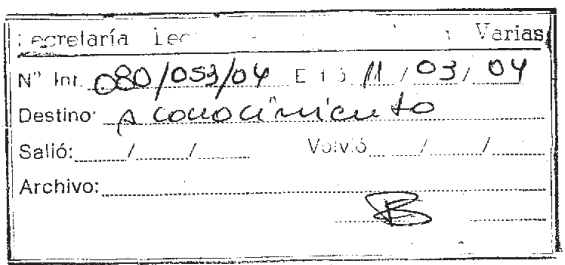 Secretaría Varias
Nº Int. 080/053/04 E t ó 11/03/04
Destino: A conocimiento
Salió: / / Volvió /  /
Archivo: